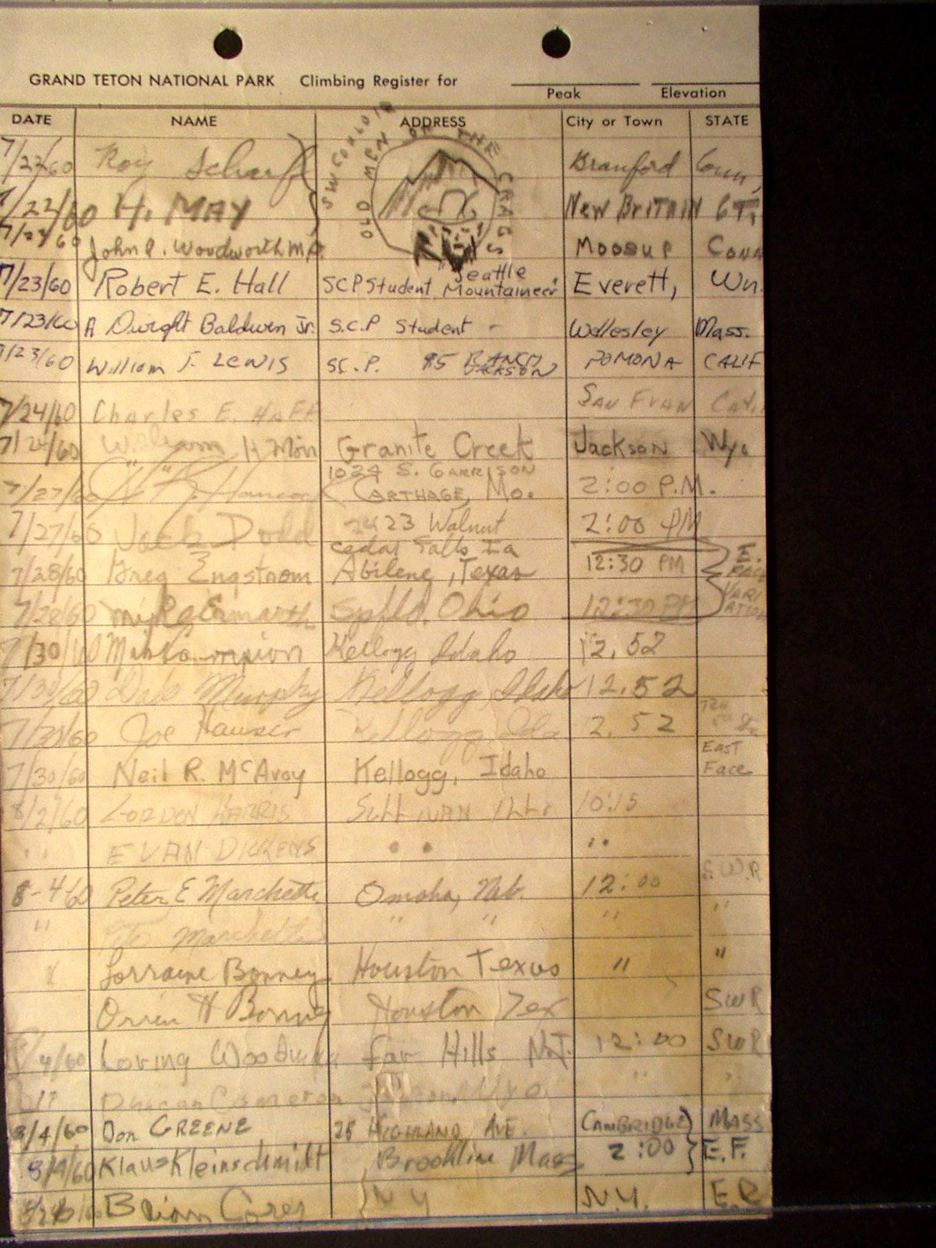 GRAND TETON NATIONAL PARK Climbing Register for
Peak Elevation
DATE NAME ADDRESS City or Town STATE
OLD MEN OF THE CRAGS
7/22/60 Roy Scharf Branford Conn,
7/22/60 H. MAY New BRITAIN CT.
John P. Woodworth M.D. Moosup Conn
Seattle
7/23/60 Robert E. Hall SCP Student, Mountaineer Everett, Wn.
7/23/60 A Dwight Baldwin Jr. S.C.P Student - Wellesley Mass.
7/23/60 William J. LEWIS SC.P. POMONA CALIF
7/24/60 Charles E. HAFF SAN FRAN Cal
7/24/60 H Mon Granite Creek Jackson Wyo
1024 S. GARRISON
7/27/60 CARTHAGE, Mo. 2:00 P.M.
7/27/60 Jack Dold 2423 Walnut 2:00 PM
cedar Falls Ia
7/28/60 Greg Engstrom Abilene, Texas 12:30 PM E. FACE VARIATION
7/28/60 Spfld. Ohio 12:30 PM
7/30/60 Kellogg Idaho 12.52
7/30/60 Dale Murphy Kellogg Idaho 12.52
7/30/60 Joe Hauser Kellogg Ida 2.52
East
7/30/60 Neil R. McAvoy Kellogg, Idaho Face
8/2/60 GORDON HARRIS SULLIVAN ILL. 10:15
" EVAN DICKENS " " "
8-4 60 Peter E Marchetti Omaha, Neb. 12:00 S.W.R
" Marchetti " " " "
" Lorraine Bonney Houston Texas " "
Orrin H Bonney Houston Tex SWR
8/4/60 Loving Far Hills N.J. 12:00 SWR
" Duncan Cameron "
8/4/60 Don GREENE 28 HIGHLAND AVE. CAMBRIDGE MASS
8/4/60 Klaus Kleinschmidt Brookline Mass 2:00 E.F.
Brian Carey NY N.Y. E.R